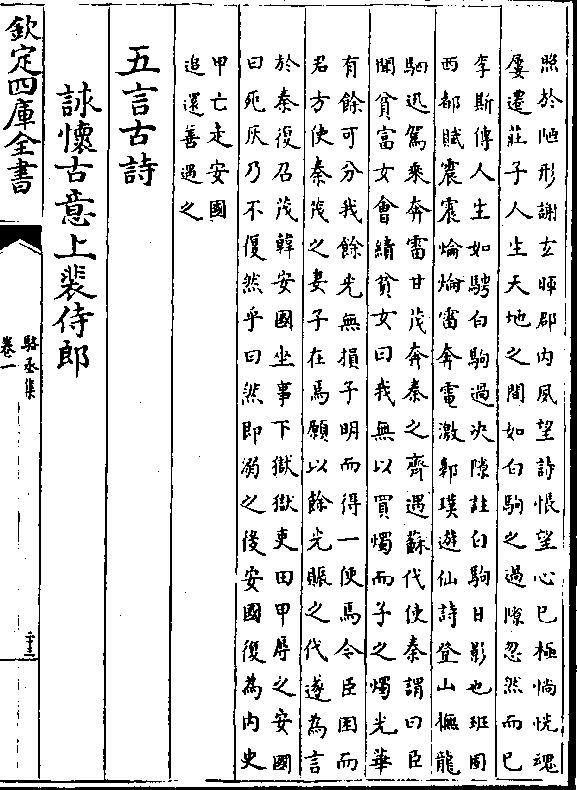 照於陋形謝玄暉郡內風望詩悵望心已極惝怳魂
屢遷莊子人生天地之間如白駒之過隙忽然而已
李斯傳人生如騁白駒過決隙註白駒日影也班固
西都賦震震爚爚雷奔電激郭璞遊仙詩登山撫龍
駟迅駕乘奔雷甘茂奔秦之齊遇蘇代使秦謂曰臣
聞貧富女會績貧女曰我無以買燭而子之燭光華
有餘可分我餘光無損子明而得一便焉今臣困而
君方使秦茂之妻子在焉願以餘光賑之代遂為言
於秦復召茂韓安國坐事下獄獄吏田甲辱之安國
曰死灰乃不復然乎曰然即溺之後安國復為內史
甲亡走安國
追還善遇之
五言古詩
詠懷古意上裴侍郎
欽定四庫全書
駱丞集
卷一
二十三